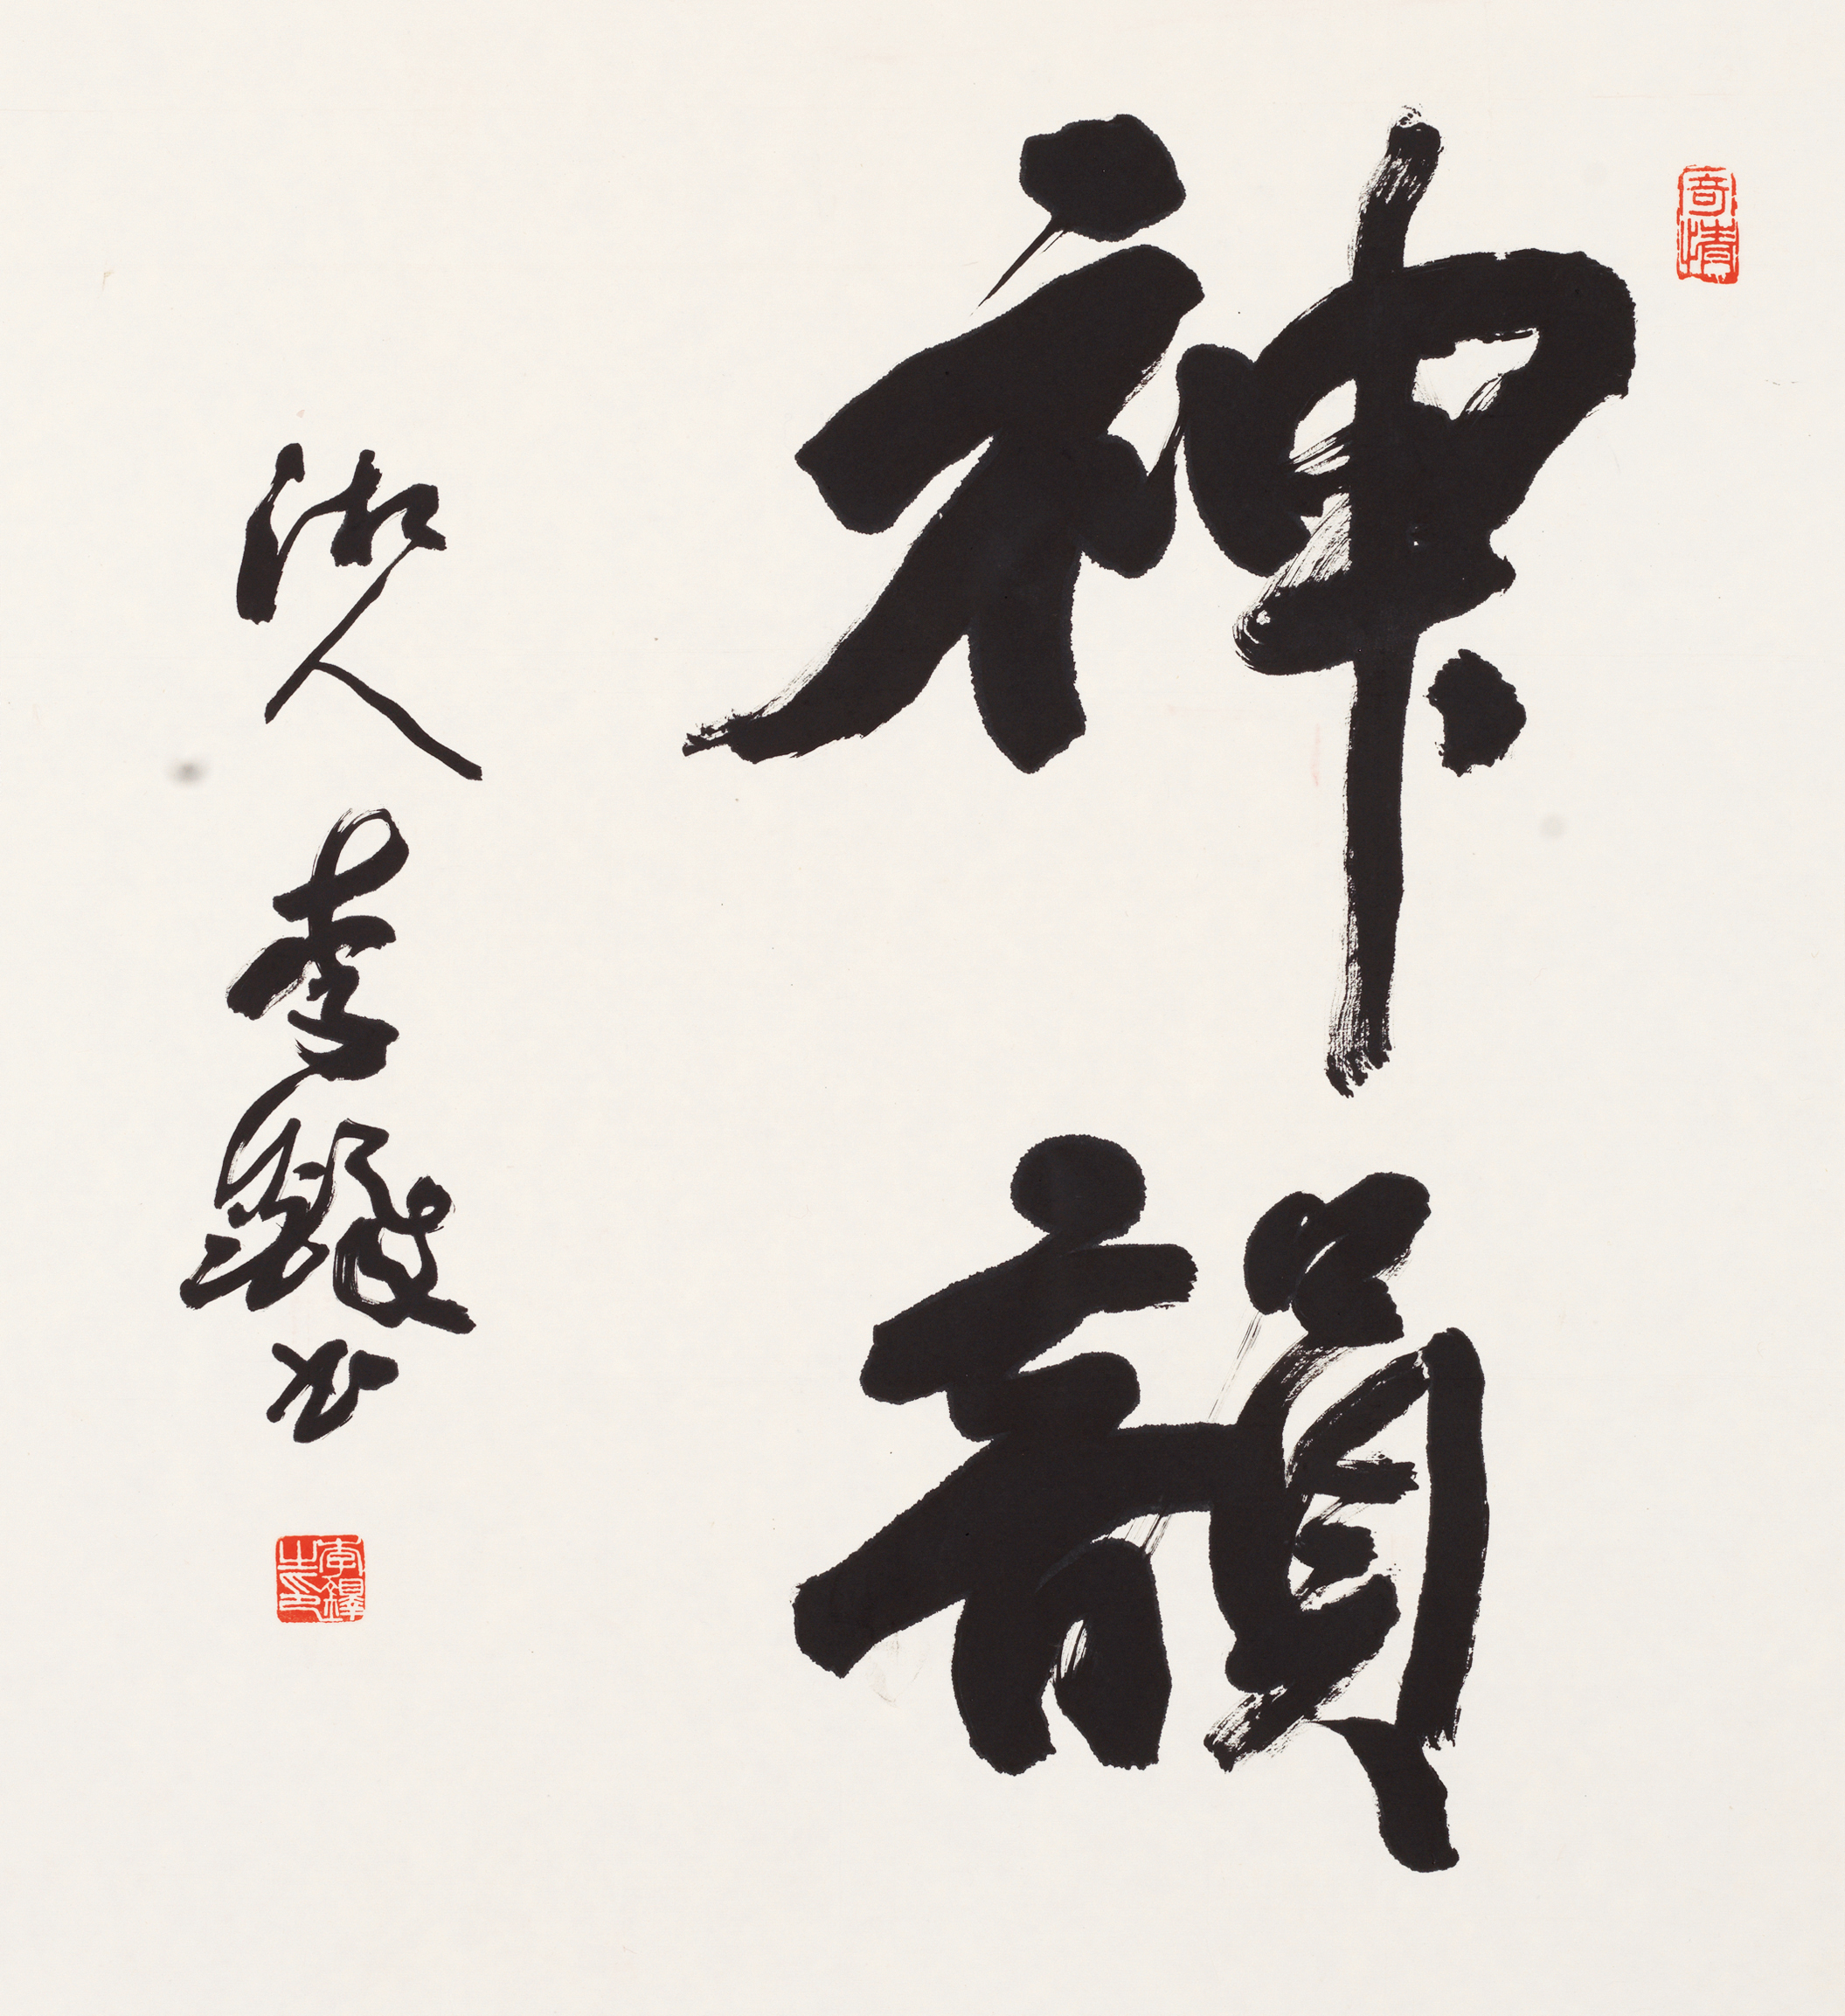 奇情
神韻
湘人李鐸书
李鐸之印